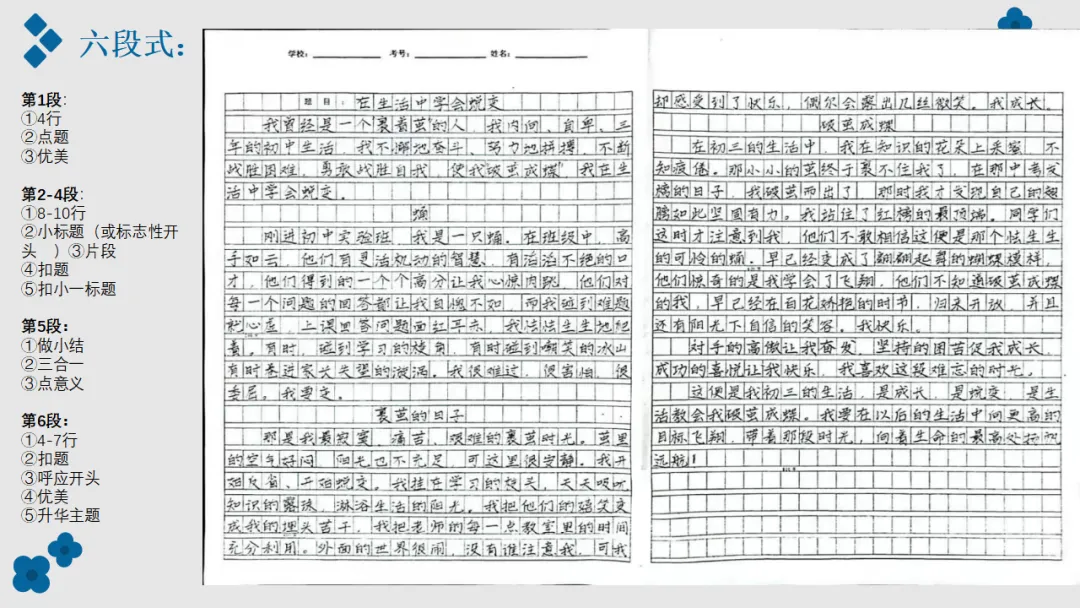 六段式：
第1段：
①4行
②点题
③优美
第2-4段：
①8-10行
②小标题（或标志性开
头　）③片段
④扣题
⑤扣小一标题
第5段：
①做小结
②三合一
③点意义
第6段：
①4-7行
②扣题
③呼应开头
④优美
⑤升华主题
学校： 考号： 姓名：
题目：在生活中学会蜕变
我曾经是一个裹着茧的人，我内向、自卑、三
年的初中生活，我不懈地奋斗、努力地拼搏，不断
战胜困难，勇敢战胜自我，使我"破茧成蝶"，我在生
活中学会蜕变。
蛹
刚进初中实验班，我是一只蛹。在班级中，高
手如云，他们有灵活机动的智慧，有滔滔不绝的口
才，他们得到的一个个高分让我心惊肉跳，他们对
每一个问题的回答都让我自愧不如，而我碰到难题
就心虚，上课回答问题面红耳赤，我怯怯生生地
着。有时，碰到学习的旋角，有时碰到嘲笑的冰山
有时卷进家长失望的漩涡。我很难过，很害怕，很
委屈。我要变。
裹茧的日子
那是我最寂寞、痛苦、艰难的裹茧时光。茧里
的空气好闷，阳光也不充足，可这里很安静。我开
始反省、开始蜕变。我挂在学习的枝头，天天吸吮
知识的露珠，淋浴生活的阳光。我把他们的嘲笑变
成我的埋头苦干，我把老师的每一点教室里的时间
充分利用。外面的世界很闹，没有谁注意我，可我
却感受到了快乐，偶尔会露出几丝微笑。我成长。
破茧成蝶
在初三的生活中，我在知识的花朵上采蜜，不
知疲倦。那小小的茧终于裹不住我了，在那中考发
榜的日子，我破茧而出了，那时我才发现自己的翅
膀如此坚固有力。我站住了红榜的最顶端。同学们
这时才注意到我，他们不敢相信这便是那个怯生生
的可怜的蛹。早已经变成了翩翩起舞的蝴蝶模样，
他们惊奇的是我学会了飞翔，他们不知道破茧成蝶
的我，早已经在百花娇艳的时节，归来开放，并且
还有阳光下自信的笑容。我快乐。
对手的高傲让我奋发，坚持的困苦促我成长，
成功的喜悦让我快乐，我喜欢这段难忘的时光。
这便是我初三的生活，是成长，是蜕变，是生
活教会我破茧成蝶。我要在以后的生活中向更高的
目标飞翔，带着那段时光，向着生命的最高处扬帆
远航！